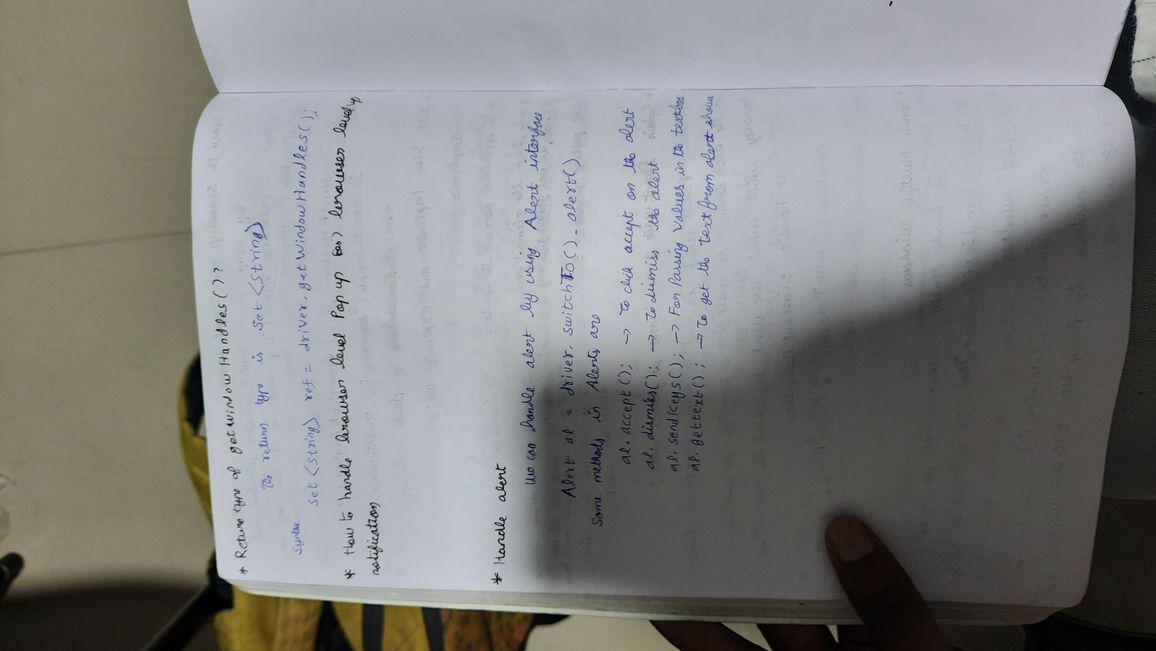 * Return type of getWindowHandles()?
The return type is Set <String>
Syntax
Set <String> ref = driver.getWindowHandles();
* How to handle browser level Pop up (or) browser level up
notification
* Handle alert
We can handle alert by using Alert interface
Alert al = driver.switchTo().alert()
Some methods in Alerts are
al.accept(); → To click accept on the alert
al.dismiss(); → To dismiss the alert
al.sendkeys(); → For Passing Values in the textbox
al.gettext(); → To get the text from alert shows